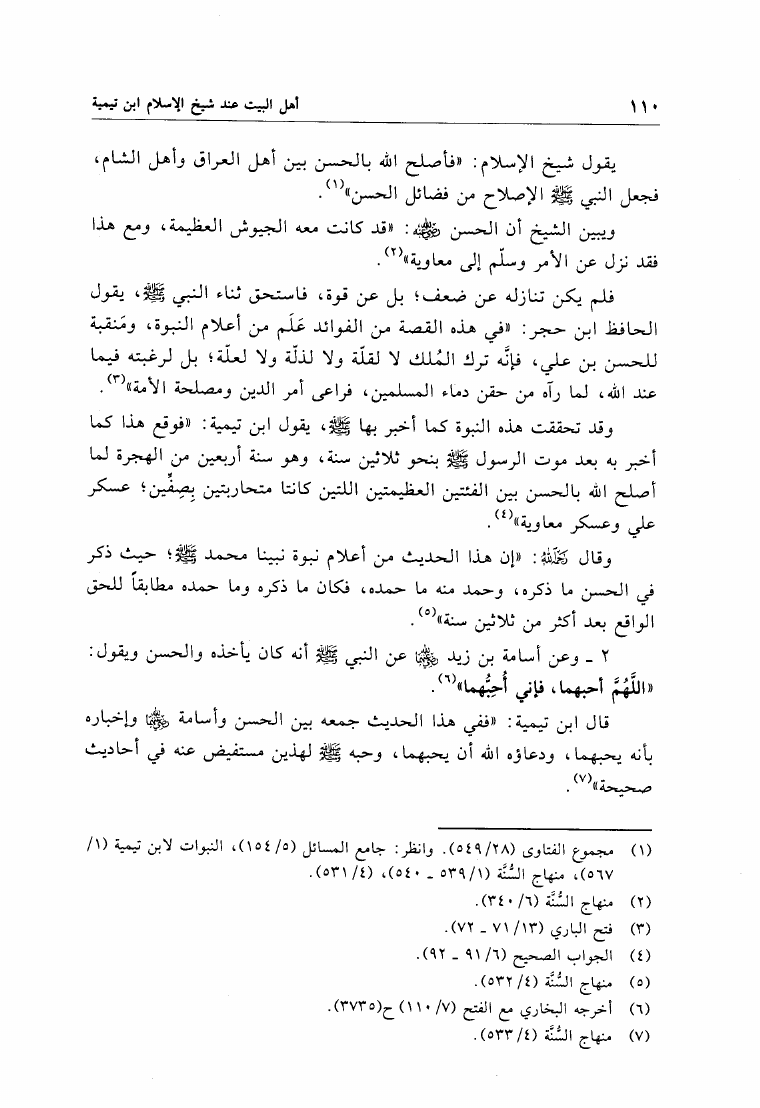 ١١٠ أهل البيت عند شيخ الإسلام ابن تيمية
يقول شيخ الإسلام: «فأصلح الله بالحسن بين أهل العراق وأهل الشام،
فجعل النبي ﷺ الإصلاح من فضائل الحسن»(١).
ويبين الشيخ أن الحسن رضي الله عنه: «قد كانت معه الجيوش العظيمة، ومع هذا
فقد نزل عن الأمر وسلّم إلى معاوية»(٢).
فلم يكن تنازله عن ضعف؛ بل عن قوة، فاستحق ثناء النبي ﷺ، يقول
الحافظ ابن حجر: «في هذه القصة من الفوائد عَلَم من أعلام النبوة، ومَنقبة
للحسن بن علي، فإنَّه ترك المُلك لا لقلّة ولا لذلّة ولا لعلّة؛ بل لرغبته فيما
عند الله، لما رآه من حقن دماء المسلمين، فراعى أمر الدين ومصلحة الأمة»(٣).
وقد تحققت هذه النبوة كما أخبر بها ﷺ، يقول ابن تيمية: «فوقع هذا كما
أخبر به بعد موت الرسول ﷺ بنحو ثلاثين سنة، وهو سنة أربعين من الهجرة لما
أصلح الله بالحسن بين الفئتين العظيمتين اللتين كانتا متحاربتين بِصِفِّين؛ عسكر
علي وعسكر معاوية»(٤).
وقال رحمه الله: «إن هذا الحديث من أعلام نبوة نبينا محمد ﷺ؛ حيث ذكر
في الحسن ما ذكره، وحمد منه ما حمده، فكان ما ذكره وما حمده مطابقاً للحق
الواقع بعد أكثر من ثلاثين سنة»(٥).
٢ ـ وعن أسامة بن زيد رضي الله عنهما عن النبي ﷺ أنه كان يأخذه والحسن ويقول:
«اللَّهُمَّ أحبهما، فإني أُحِبُّهما»(٦).
قال ابن تيمية: «ففي هذا الحديث جمعه بين الحسن وأسامة رضي الله عنهما وإخباره
بأنه يحبهما، ودعاؤه الله أن يحبهما، وحبه ﷺ لهذين مستفيض عنه في أحاديث
صحيحة»(٧).
(١) مجموع الفتاوى (٥٤٩/٢٨). وانظر: جامع المسائل (١٥٤/٥)، النبوات لابن تيمية (١/
٥٦٧)، منهاج السُّنَّة (٥٣٩/١ ـ ٥٤٠)، (٥٣١/٤).
(٢) منهاج السُّنَّة (٣٤٠/٦).
(٣) فتح الباري (٧١/١٣ ـ ٧٢).
(٤) الجواب الصحيح (٩١/٦ ـ ٩٢).
(٥) منهاج السُّنَّة (٥٣٢/٤).
(٦) أخرجه البخاري مع الفتح (١١٠/٧) ح(٣٧٣٥).
(٧) منهاج السُّنَّة (٥٣٣/٤).